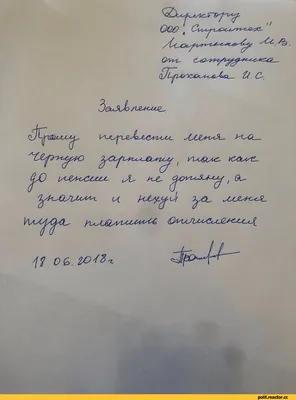 Директору
ООО „Стройтех"
Мартынову М.В.
от сотрудника
Проханова И.С.
Заявление
Прошу перевести меня на
чёрную зарплату, так как
до пенсии я не дотяну, а
значит и нехуй за меня
туда платить отчисления
18.06.2018г
polit.reactor.cc